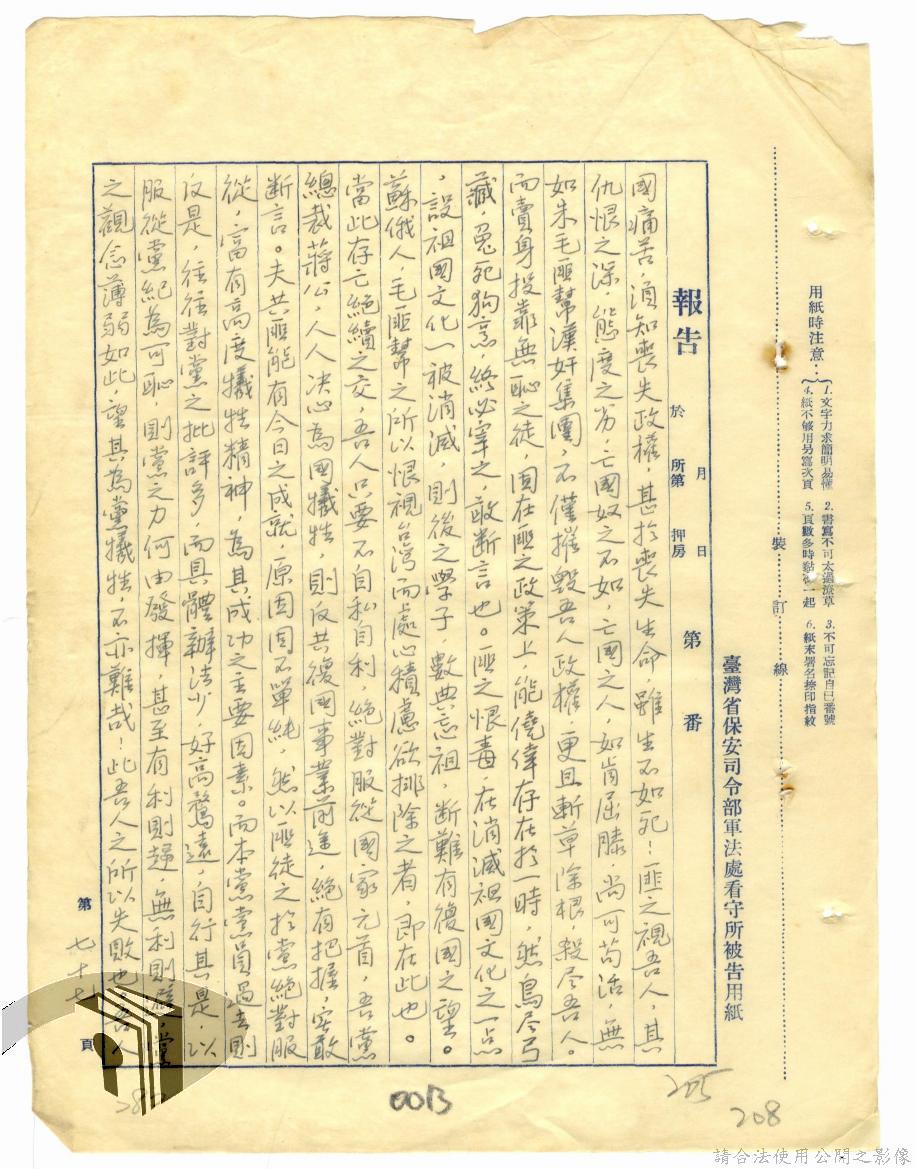 用紙時注意：
1. 文字力求簡明易懂 2. 書寫不可太過潦草 3. 不可忘記自己番號
4. 紙不够用另寫次頁 5. 頁數多時黏在一起 6. 紙末署名捺印指紋
裝訂線
臺灣省保安司令部軍法處看守所被告用紙
報告 於 月 日 所第 押房 第 番
國痛苦，須知喪失政權，甚於喪失生命，雖生不如死！匪之視吾人，其
仇恨之深，態度之劣，亡國奴之不如，亡國之人，如肯屈膝，尚可苟活，無
如朱毛匪幫漢奸集團，不僅摧毀吾人政權，更且斬草除根，殺尽吾人。
而賣身投靠無恥之徒，固在匪之政策上，能僥倖存在於一時，然鳥尽弓
藏，兔死狗烹，終必宰之，敢断言也。匪之恨毒，在消滅祖國文化之一点
，設祖國文化一被消滅，則後之學子，數典忘祖，断難有復國之望。
蘇俄人，毛匪幫之所以恨視台湾而處心積慮欲排除之者，即在此也。
當此存亡絕續之交，吾人只要不自私自利，絕對服從國家元首，吾黨
總裁蔣公，人人决心為國犧牲，則反共復國事業前途，絕有把握，实敢
断言。夫共匪能有今日之成就，原因固不單純，然以匪徒之於黨絕對服
從，富有高度犧牲精神，為其成功之主要因素。而本黨黨員過去則
反是，往往對黨之批評多，而具體辦法少，好高騖遠，自行其是，以
服從黨紀為可恥，則黨之力何由發揮，甚至有利則趨，無利則避，黨
之觀念薄弱如此，望其為黨犧牲，不亦難哉！此吾人之所以失敗也。吾人
第 七十七 頁
0013
205
208
請合法使用公開之影像